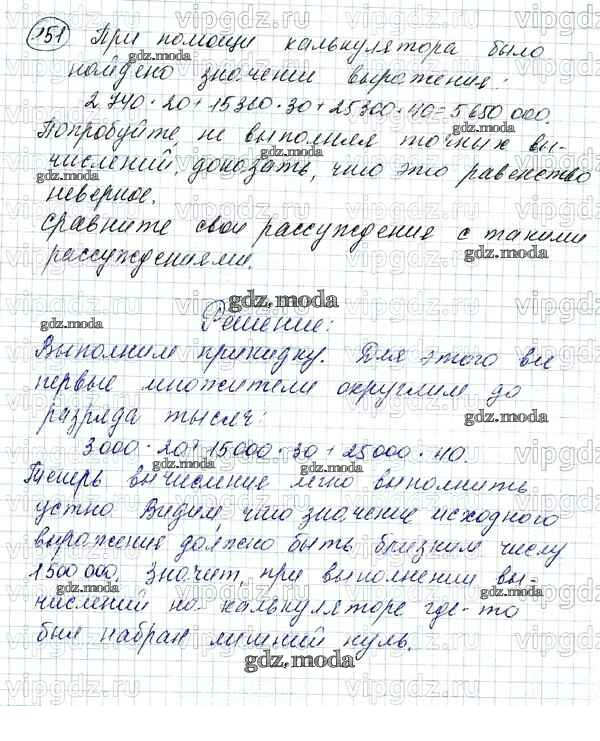 151 При помощи калькулятора было
найдено значений выражения:
2 740·20+15 360·30+25 300·40=5 650 000.
Попробуйте не выполняя точных вы-
числений, доказать, что это равенство
неверное.
Сравните свои рассуждения с такими
рассуждениями.
Решение:
Выполним прикидку. Для этого все
первые множители округлим до
разряда тысяч:
3000·20+15000·30+25000·40.
Теперь вычисление легко выполнить
устно Видим, что значение исходного
выражение должно быть близким числу
1500 000. Значит, при выполнении вы-
числений на калькуляторе где-то
был набран лишний нуль.
gdz.moda
vipgdz.ru